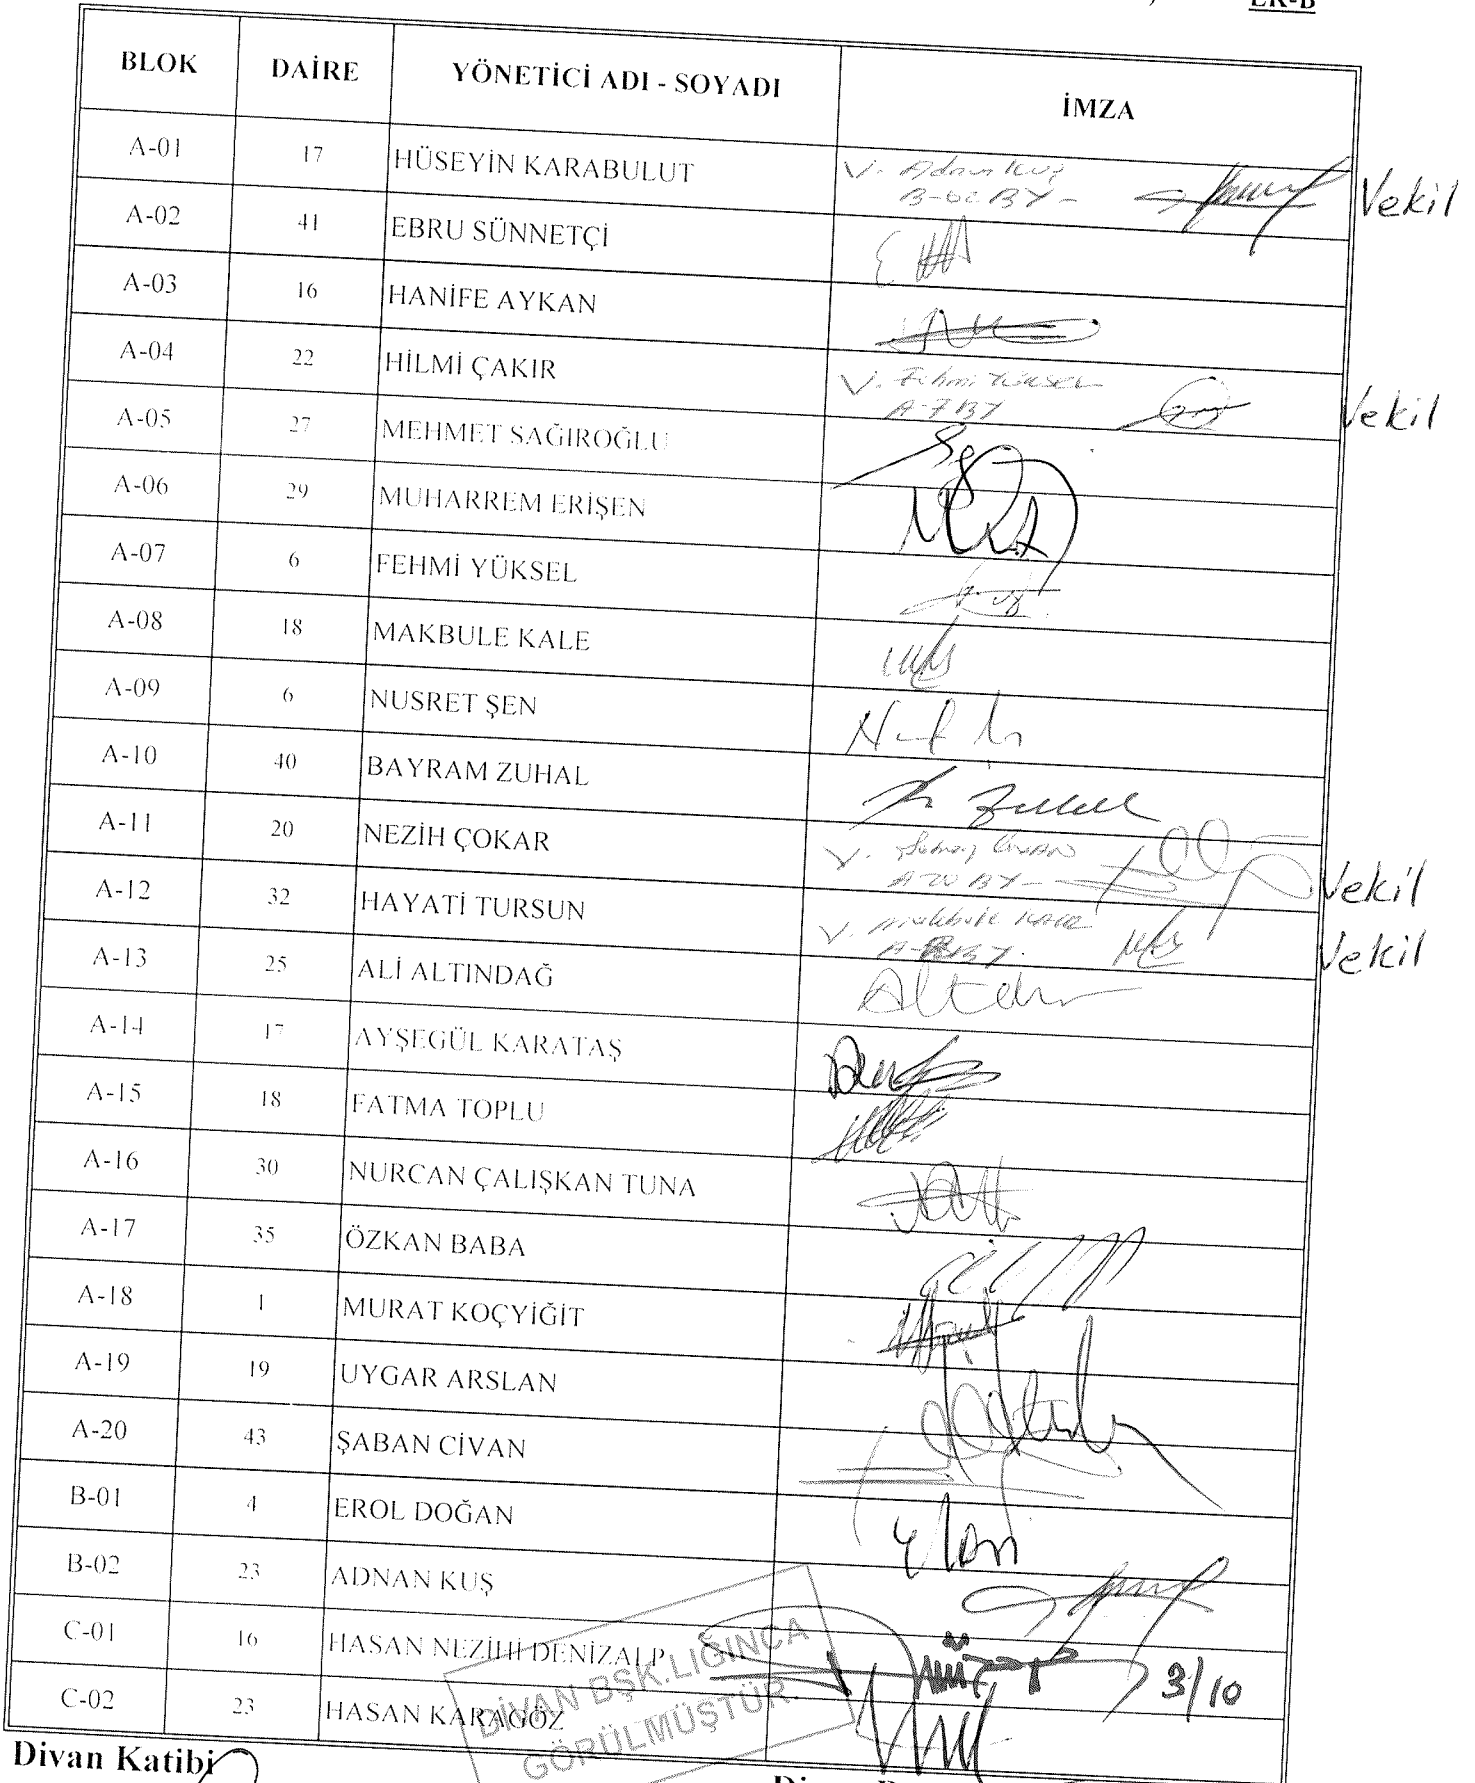 EK-B
BLOK DAİRE YÖNETİCİ ADI - SOYADI İMZA
A-01 17 HÜSEYİN KARABULUT V. Adnan Kuş
B-02 BY - Vekil
A-02 41 EBRU SÜNNETÇİ
A-03 16 HANİFE AYKAN
A-04 22 HİLMİ ÇAKIR V. Fehmi Yüksel
A-7 BY Vekil
A-05 27 MEHMET SAĞIROĞLU
A-06 29 MUHARREM ERİŞEN
A-07 6 FEHMİ YÜKSEL
A-08 18 MAKBULE KALE
A-09 6 NUSRET ŞEN
A-10 40 BAYRAM ZUHAL
A-11 20 NEZİH ÇOKAR V. Şaban Civan
A-20 BY - Vekil
A-12 32 HAYATİ TURSUN V. Makbule Kale
A-8 BY. Vekil
A-13 25 ALİ ALTINDAĞ
A-14 17 AYŞEGÜL KARATAŞ
A-15 18 FATMA TOPLU
A-16 30 NURCAN ÇALIŞKAN TUNA
A-17 35 ÖZKAN BABA
A-18 1 MURAT KOÇYİĞİT
A-19 19 UYGAR ARSLAN
A-20 43 ŞABAN CİVAN
B-01 4 EROL DOĞAN
B-02 23 ADNAN KUŞ
C-01 16 HASAN NEZİHİ DENİZALP 3/10
C-02 23 HASAN KARAGÖZ
DİVAN BŞK.LIĞINCA
GÖRÜLMÜŞTÜR.
Divan Katibi